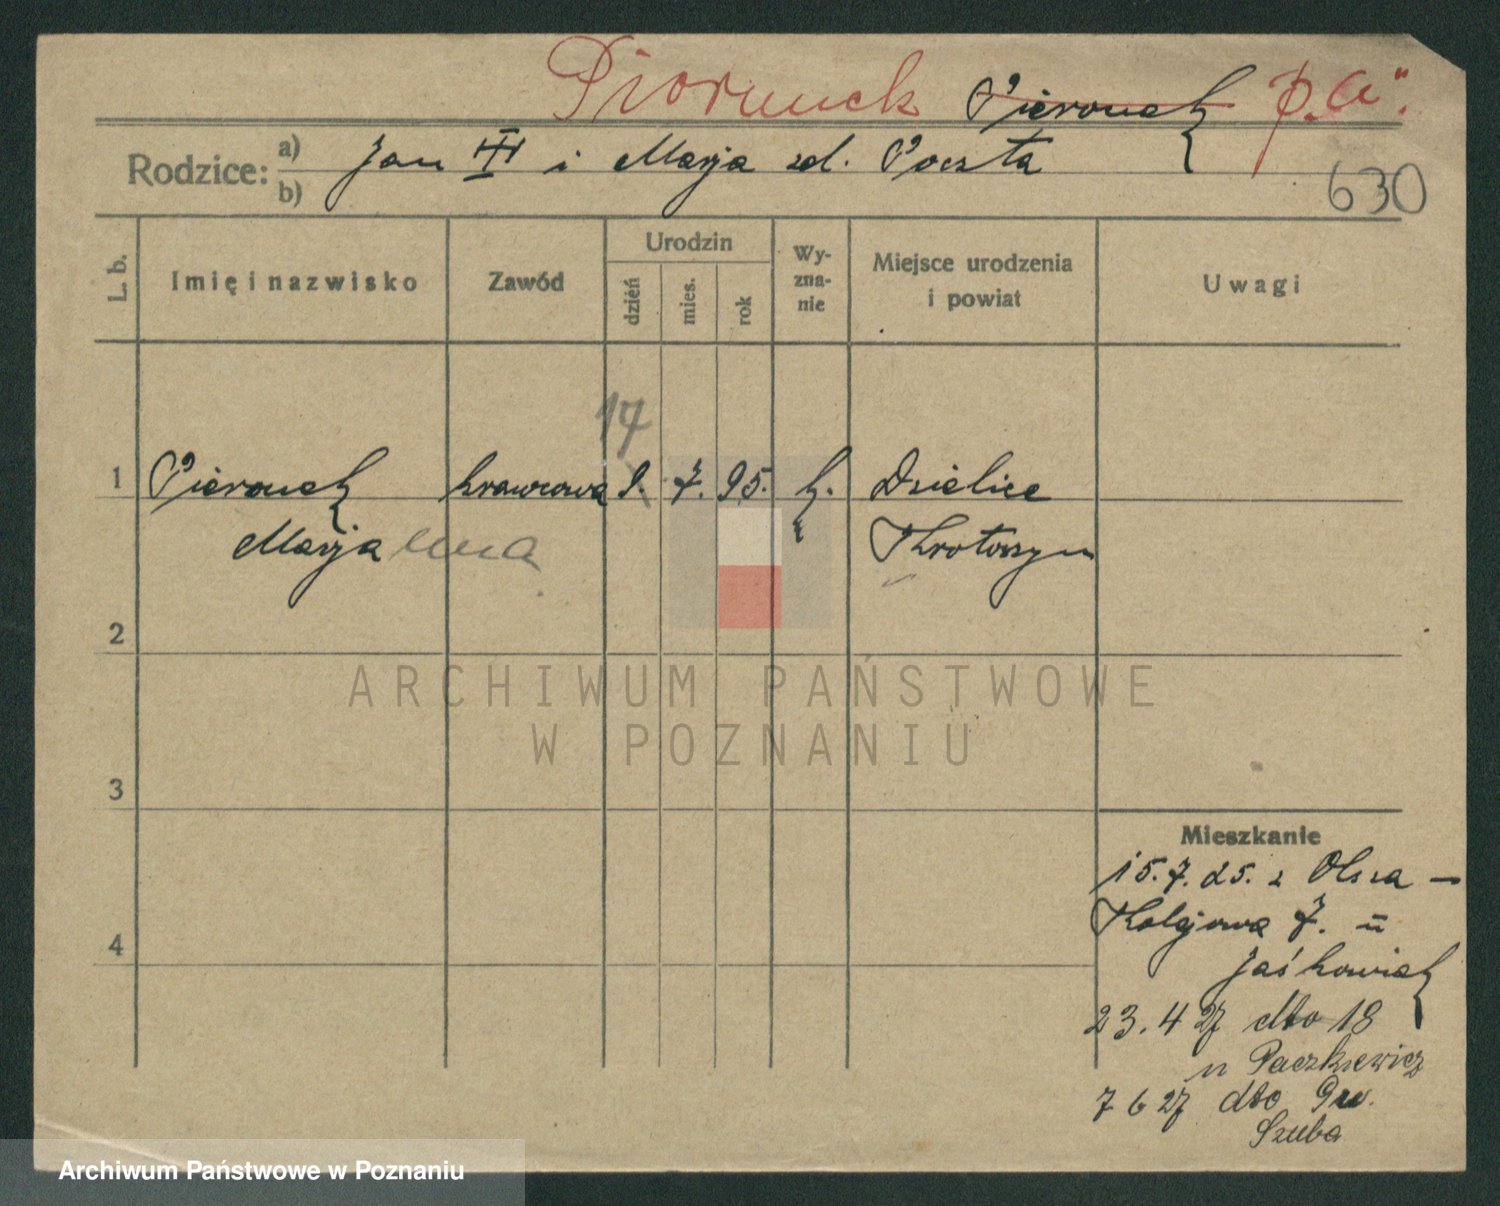 Piorunek Pieronek p. "A".
Rodzice: a) Jan III i Marja zd. Poczta
b)
630
L. b. Imię i nazwisko Zawód Urodzin dzień mies. rok Wy-zna-nie Miejsce urodzenia i powiat Uwagi
17
1 Pieronek krawcowa 9. 7. 95. k. Dzielice
Marja nna Krotoszyn
2
ARCHIWUM PAŃSTWOWE
W POZNANIU
3
Mieszkanie
15.7.25. z Olsza –
Kolejowa 7. u
4
Jaśkowiak
23.4 27 dto 18
u Paczkiewicz
7 6 27 dto 9
Szuba
Archiwum Państwowe w Poznaniu